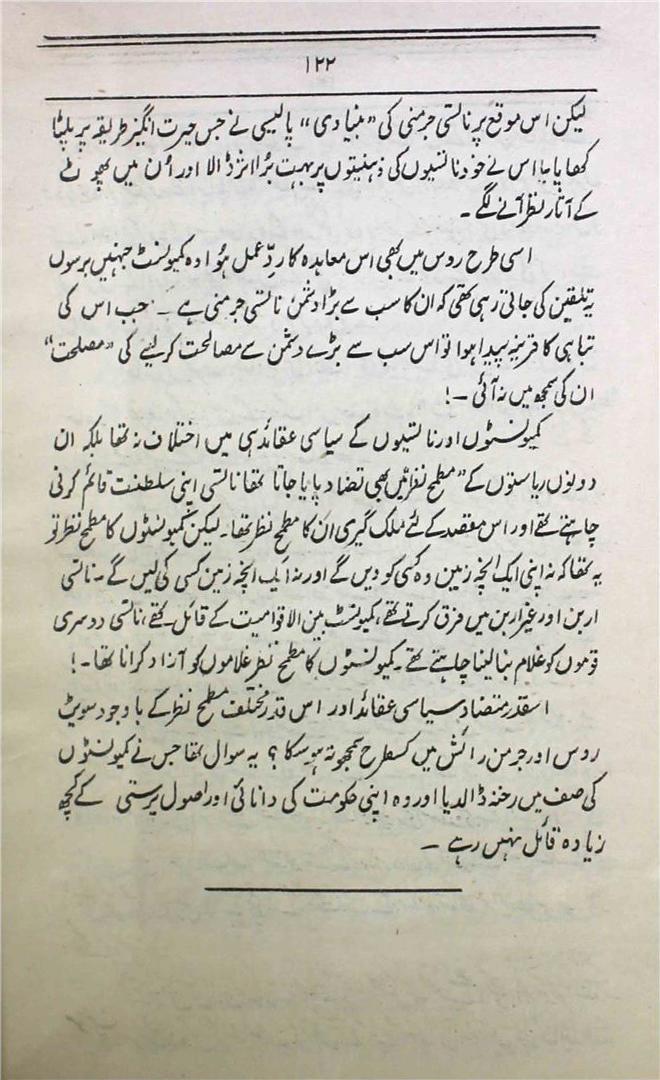 ۱۲۲
لیکن اس موقع پر ناتسی جرمنی کی "بنیادی" پالیسی نے جس حیرت انگیز طریقہ پر پلٹا
کھایا یا اس نے خود ناتسیوں کی ذہنیتوں پر بہت بُرا اثر ڈالا اور اُن میں پھوٹ
کے آثار نظر آنے لگے۔
اسی طرح روس میں بھی اس معاہدہ کا ردِّ عمل ہُوا وہ کمیونسٹ جنہیں برسوں
یہ تلقین کی جاتی رہی تھی کہ ان کا سب سے بڑا دشمن ناتسی جرمنی ہے۔ جب اس کی
تباہی کا قرینہ پیدا ہوا تو اس سب سے بڑے دشمن سے مصالحت کرلینے کی "مصلحت"
ان کی سمجھ میں نہ آئی ۔!
کمیونسٹوں اور ناتسیوں کے سیاسی عقائد ہی میں اختلاف نہ تھا بلکہ ان
دونوں ریاستوں کے "مطمح نظر میں بھی تضاد پایا جاتا تھا ناتسی اپنی سلطنت قائم کرنی
چاہتے تھے اور اس مقصد کے لئے ملک گیری ان کا مطمح نظر تھا۔ لیکن کمیونسٹوں کا مطمح نظر تو
یہ تھا کہ نہ اپنی ایک انچہ زمین وہ کسی کو دیں گے اور نہ ایک انچہ زمین کسی کی لیں گے۔ ناتسی
ارین اور غیر ارین میں فرق کرتے تھے، کمیونسٹ بین الاقوامیت کے قائل تھے، ناتسی دوسری
قوموں کو غلام بنا لینا چاہتے تھے۔ کمیونسٹوں کا مطمح نظر غلاموں کو آزاد کرانا تھا۔!
اسقدر متضاد سیاسی عقائد اور اس قدر مختلف مطمح نظر کے باوجود سویٹ
روس اور جرمن رائش میں کسطرح سمجھوتہ ہو سکا؟ یہ سوال تھا جس نے کمیونسٹوں
کی صف میں رخنہ ڈالدیا اور وہ اپنی حکومت کی دانائی اور اصول پرستی کے کچھ
زیادہ قائل نہیں رہے ۔